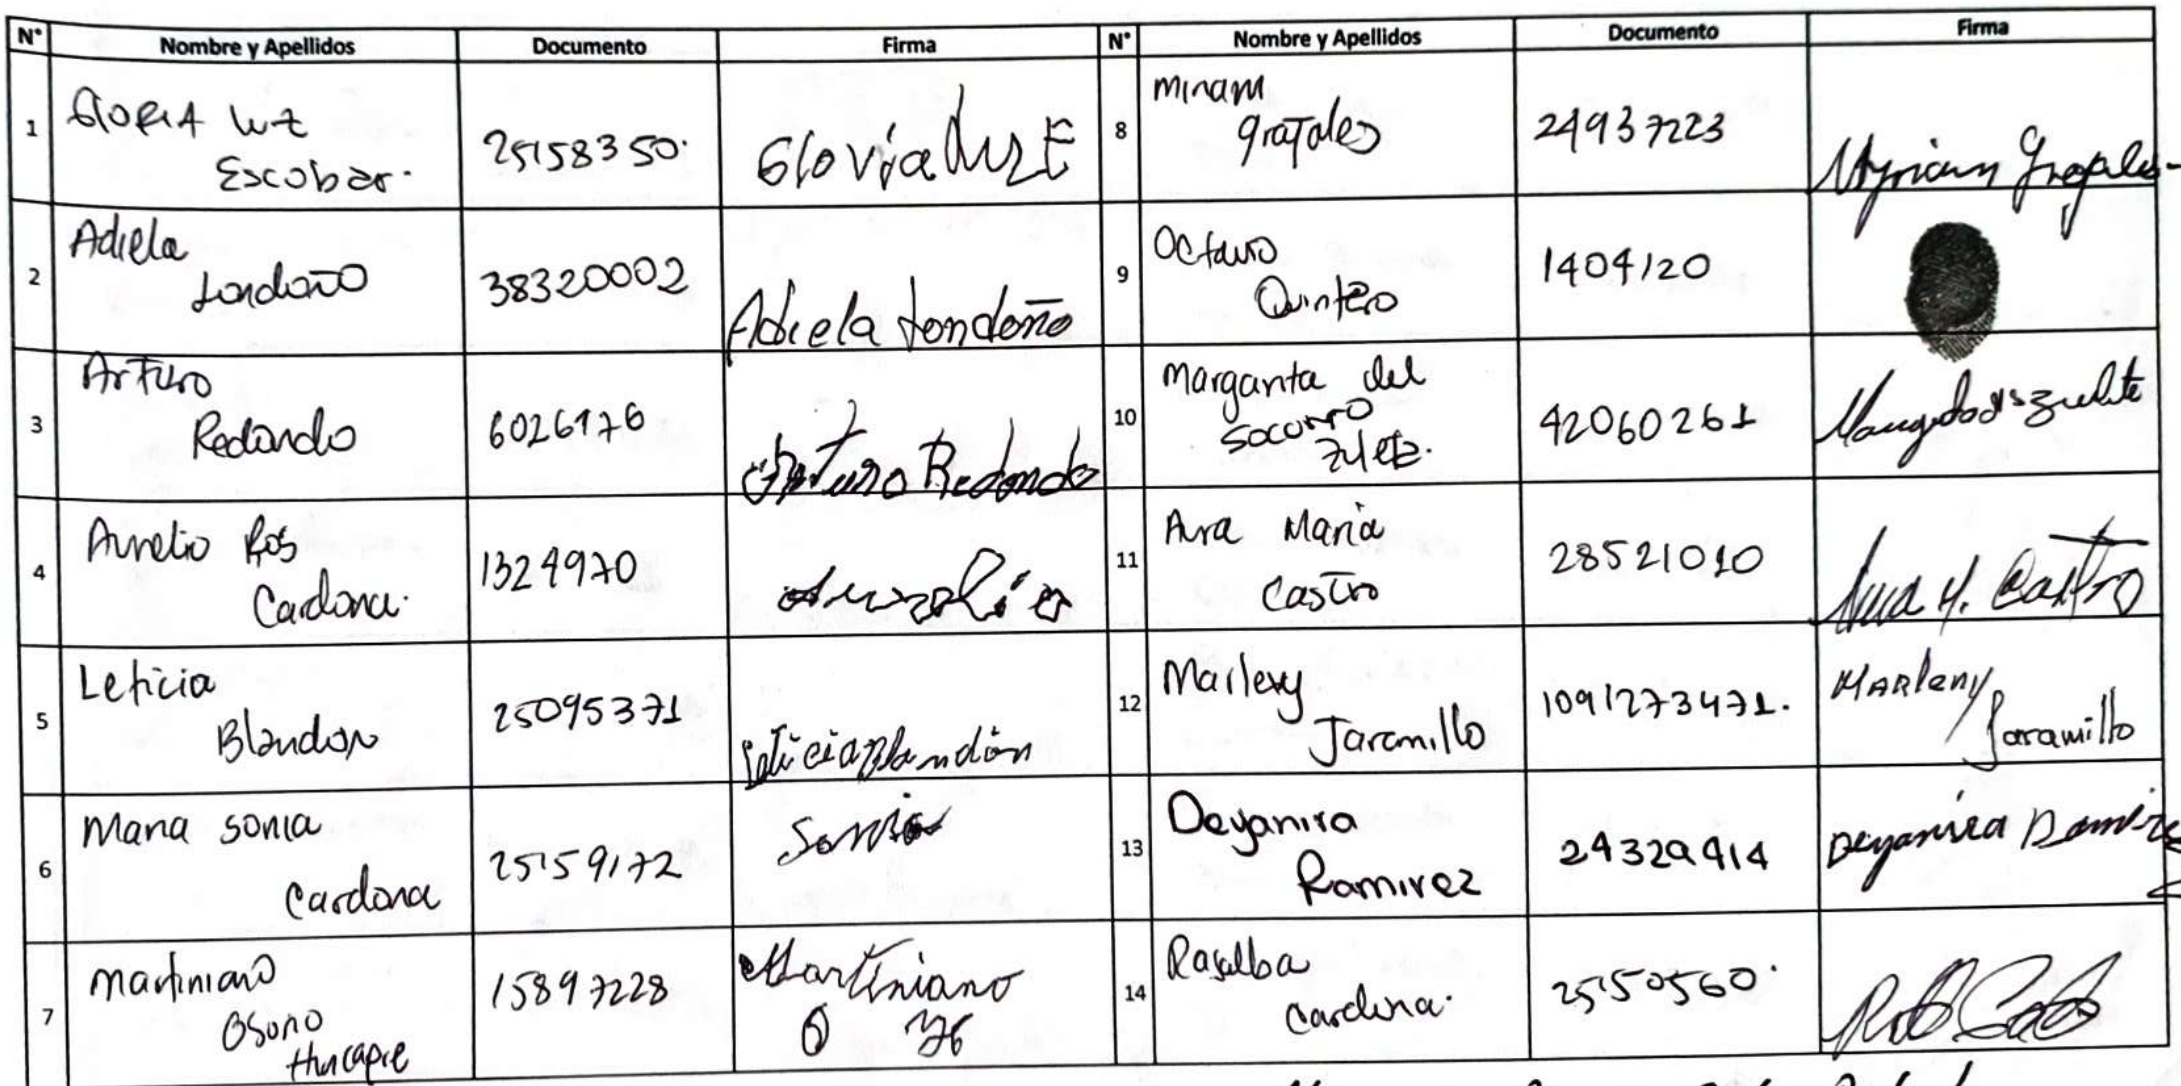 N° Nombre y Apellidos Documento Firma N° Nombre y Apellidos Documento Firma
1 Gloria Luz Escobar. 25158350. Gloria Luz E
2 Adiela Londoño 38320002 Adiela Londoño
3 Arturo Redondo 6026176 Arturo Redondo
4 Aurelio Ríos Cardona. 1324970
5 Leticia Blandon 25095371 Leticia Blandón
6 Maria Sonia Cardona 25159172 Sonia
7 Martiniano Osorio Hincapie 15897228 Martiniano O
8 Miriam Grajales 24937223 Myriam Grajales
9 Octavio Quintero 1404120
10 Margarita del Socorro Zuleta. 42060261
11 Aura Maria Castro 28521010 Aura M. Castro
12 Marleny Jaramillo 1091273471. Marleny Jaramillo
13 Deyanira Ramirez 24329414 Deyanira Ramirez
14 Rosalba Cardona. 25150560.